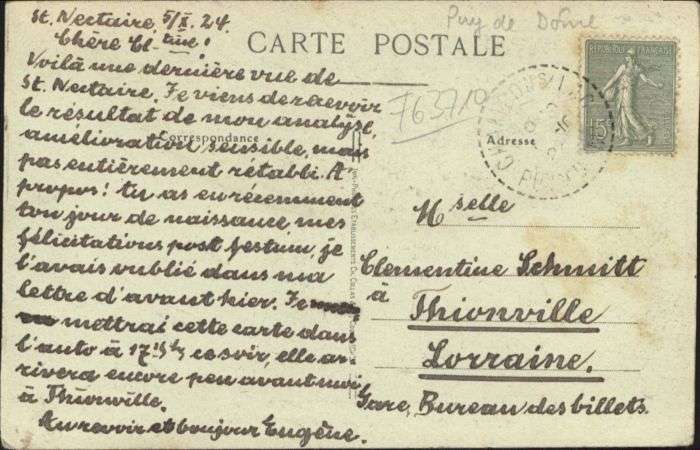 Puy de Dôme
St. Nectaire, 5/X. 24.
Chère Cl-tine!
CARTE POSTALE
Voilà une dernière vue de
St. Nectaire. Je viens de recevoir
le résultat de mon analyse,
amélioration sensible, mais
pas entièrement rétabli. À
propos! tu as eu récemment
ton jour de naissance, mes
félicitations post festum, je
l'avais oublié dans ma
lettre d'avant hier. Je
mettrai cette carte dans
l'auto à 17 ce soir, elle ar-
rivera encore peu avant moi
à Thionville.
Au revoir et bonjour Eugène.
Correspondance
Adresse
REPUBLIQUE FRANÇAISE
15
F63710
Mselle
Clementine Schmitt
à
Thionville
Lorraine.
Gare, Bureau des billets.